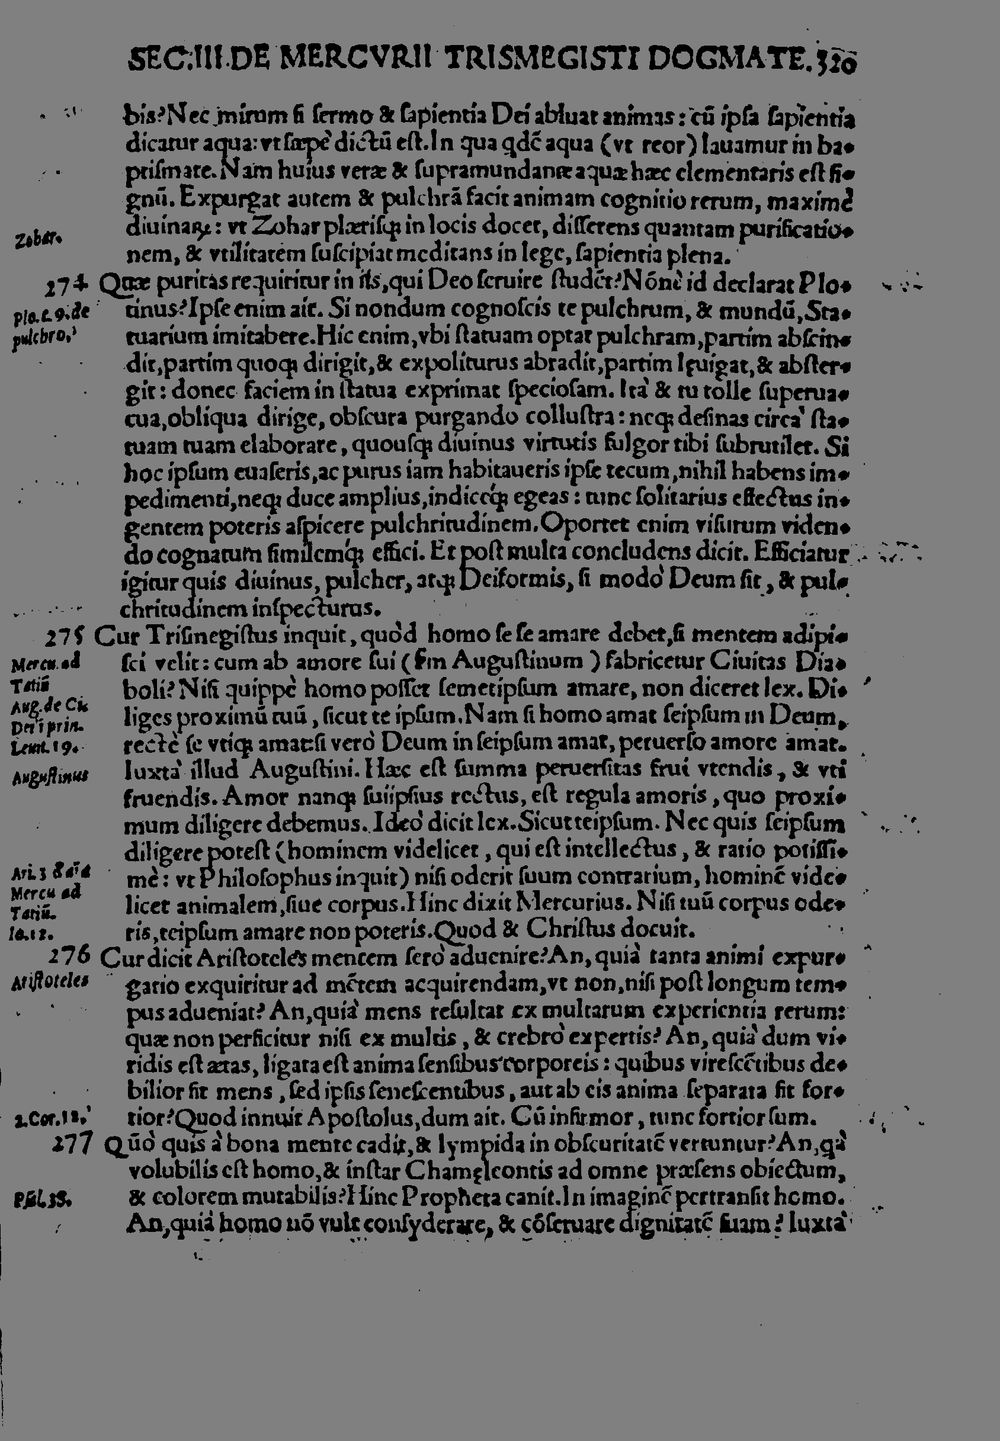 SEC:III.DE MERCVRII TRISMEGISTI DOGMATE.320
bis?Nec mirum si sermo & sapientia Dei abluat animas: cũ ipsa sapientia
dicatur aqua: vt sæpè dictũ est.In qua qdẽ aqua (vt reor) lauamur in ba-
ptismate. Nam huius veræ & supramundanæ aquæ hæc elementaris est si-
gnũ. Expurgat autem & pulchrã facit animam cognitio rerum, maximè
Zohar.
diuinarꝝ: vt Zohar plærisqꝫ in locis docet, disserens quantam purificatio-
nem, & vtilitatem suscipiat meditans in lege, sapientia plena.
274 Quæ puritas requiritur in ijs, qui Deo seruire studẽt?Nónè id declarat Plo-
Plo.l.9.de
pulchro.
tinus?Ipse enim ait. Si nondum cognoscis te pulchrum, & mundũ, Sta-
tuarium imitabere.Hic enim, vbi statuam optat pulchram, partim abscin-
dit, partim quoqꝫ dirigit, & expoliturus abradit, partim lęuigat, & abster-
git: donec faciem in statua exprimat speciosam. Ità & tu tolle superua-
cua, obliqua dirige, obscura purgando collustra: neqꝫ desinas circà sta-
tuam tuam elaborare, quousqꝫ diuinus virtutis fulgor tibi subrutilet. Si
hoc ipsum euaseris, ac purus iam habitaueris ipse tecum, nihil habens im-
pedimenti, neqꝫ duce amplius, indiceqꝫ egeas: tunc solitarius effectus in-
gentem poteris aspicere pulchritudinem. Oportet enim visurum viden-
do cognatum similemqꝫ effici. Et post multa concludens dicit. Efficiatur
igitur quis diuinus, pulcher, atqꝫ Deiformis, si modò Deum sit, & pul-
chritudinem inspecturus.
275 Cur Trismegistus inquit, quòd homo se se amare debet, si mentem adipi-
Mercu. ad
Tatiũ
Aug. de Ci.
Dei i prin.
Leuit.19.
Augustinus
sci velit: cum ab amore sui (sm Augustinum) fabricetur Ciuitas Dia-
boli? Nisi quippè homo posset semetipsum amare, non diceret lex. Di-
liges proximũ tuũ, sicut te ipsum.Nam si homo amat seipsum in Deum,
rectè se vtiqꝫ amat:si verò Deum in seipsum amat, peruerso amore amat.
Iuxtà illud Augustini. Hæc est summa peruersitas frui vtendis, & vti
fruendis. Amor nanqꝫ suiipsius rectus, est regula amoris, quo proxi-
mum diligere debemus. Ideò dicit lex.Sicut teipsum. Nec quis seipsum
diligere potest (hominem videlicet, qui est intellectus, & ratio potissi-
Ari.3
Mercu ad
Tatiũ.
Io.12.
mè: vt Philosophus inquit) nisi oderit suum contrarium, hominẽ vide-
licet animalem, siue corpus.Hinc dixit Mercurius. Nisi tuũ corpus ode-
ris, teipsum amare non poteris.Quod & Christus docuit.
276 Cur dicit Aristoteles mentem serò aduenire?An, quià tanta animi expur-
Aristoteles
gatio exquiritur ad mẽtem acquirendam, vt non, nisi post longum tem-
pus adueniat? An, quià mens resultat ex multarum experientia rerum:
quæ non perficitur nisi ex multis, & crebrò expertis? An, quià dum vi-
ridis est ætas, ligata est anima sensibus corporeis: quibus virescẽtibus de-
bilior fit mens, sed ipsis senescentibus, aut ab eis anima separata fit for-
2.Cor.12.
tior?Quod innuit Apostolus, dum ait. Cũ infirmor, tunc fortior sum.
277 Qũo quis à bona mente cadit, & lympida in obscuritatẽ vertuntur?An, qà
volubilis est homo, & instar Chamęleontis ad omne præsens obiectum,
Psal.38.
& colorem mutabilis?Hinc Propheta canit.In imaginẽ pertransit homo.
An, quià homo nõ vult consyderare, & cõseruare dignitatẽ suam? Iuxtà